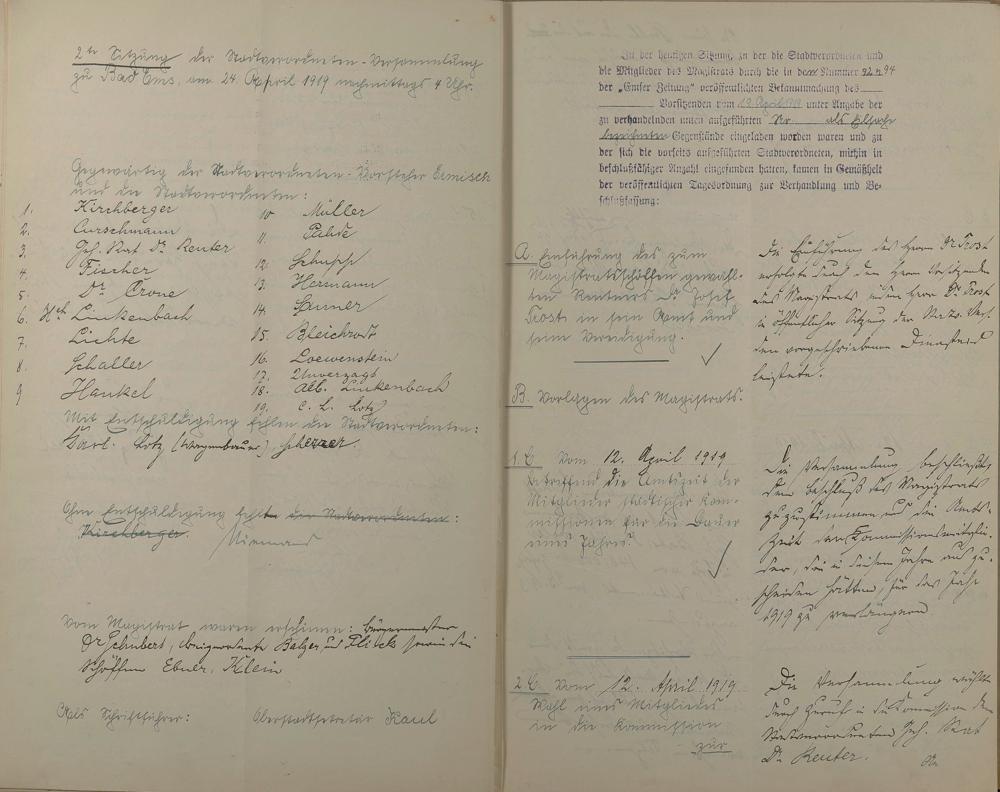 2te Sitzung der Stadtverordneten-Versammlung
zu Bad Ems, am 24 April 1919 nachmittags 4 Uhr.
Gegenwärtig der Stadtverordneten-Vorsteher Ermisch
und die Stadtverordneten:
1. Kirchberger
2. Curschmann
3. Geh. Rat Dr Reuter
4. Fischer
5. Dr. Crone
6. Hch Linkenbach
7. Lichte
8. Schaller
9 Hankel
10 Müller
11. Pahde
12. Schupp
13. Hermann
14. Sauner
15. Bleichrodt
16. Loewenstein
17. Unverzagt
18. Alb. Linkenbach
19. C. L. Lotz
Mit Entschuldigung fehlen die Stadtverordneten:
Karl Lotz (Wagenbauer), Scherrer.
Ohne Entschuldigung fehlte der Stadtverordneten:
Kirchberger. Niemand
Vom Magistrat waren erschienen: Bürgermeister
Dr Schubert, Beigeordnete Balzer und Flöck sowie die
Schöffen Ebner, Klein
Als Schriftführer: Oberstadtsekretär Kaul
In der heutigen Sitzung, zu der die Stadtverordneten und
die Mitglieder des Magistrats durch die in den Nummer 92 u 94
der „Emser Zeitung“ veröffentlichten Bekanntmachung des
Vorsitzenden vom 19 April 1919 unter Angabe der
zu verhandelnden unten aufgeführten Nr. als
Gegenstände eingeladen worden waren und zu
der sich die vorseits aufgeführten Stadtverordneten, mithin in
beschlußfähiger Anzahl eingefunden hatten, kamen in Gemäßheit
der veröffentlichten Tagesordnung zur Verhandlung und Be-
schlußfassung:
A. Einführung des zum
Magistratsschöffen gewähl-
ten Rentners Dr. Josef
Trost in sein Amt und
seine Vereidigung.
Die Einführung des Herrn Dr Trost
erfolgte durch den Herrn Vorsitzenden
des Magistrats indem Herr Dr. Trost
in öffentlicher Sitzung der Verz. Vers.
den vorgeschriebenen Diensteid
leistete.
B. Vorlagen des Magistrats.
1. C. vom 12. April 1919
betreffend die Amtszeit der
Mitglieder städtischer Kom-
missionen für die Dauer
eines Jahres.
Die Versammlung beschließt,
dem Beschluß des Magistrats
zuzustimmen und die Amts-
zeit der Kommissionsmitglie-
der, die in diesem Jahre aus zu
scheiden hätten, für das Jahr
1919 zu verlängern
2. C. vom 12. April 1919
Wahl eines Mitgliedes
in die Kommission
zur
Die Versammlung wählte
durch Zuruf in die Kommission den
Stadtverordneten Geh. Rat
Dr. Reuter.